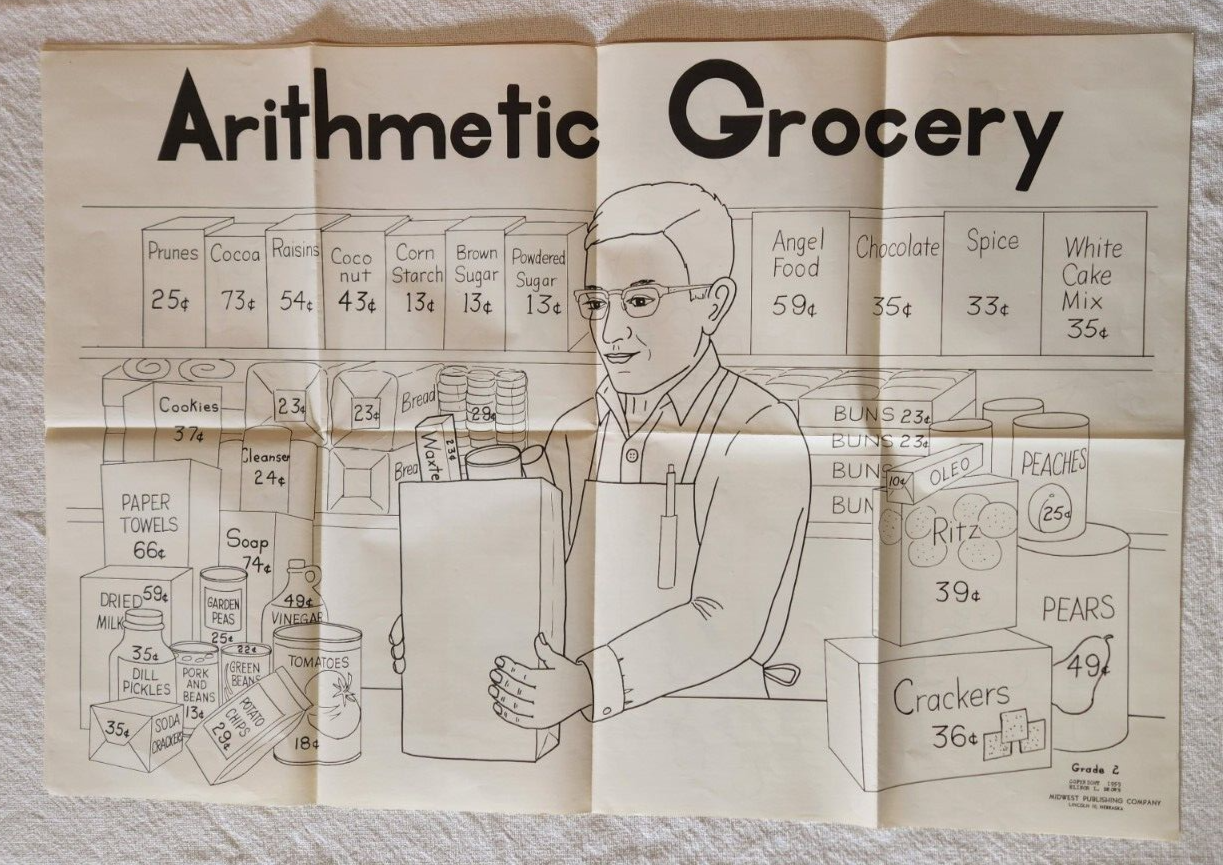 Arithmetic Grocery
Prunes
25¢
Cocoa
73¢
Raisins
54¢
Coco
nut
43¢
Corn
Starch
13¢
Brown
Sugar
13¢
Powdered
Sugar
13¢
Angel
Food
59¢
Chocolate
35¢
Spice
33¢
White
Cake
Mix
35¢
Cookies
37¢
23¢
23¢
Bread
29¢
Brea
Waxte
23¢
Cleanser
24¢
BUNS 23¢
BUNS 23¢
BUNS
BUN
10¢ OLEO
PEACHES
25¢
PAPER
TOWELS
66¢
Soap
74¢
Ritz
39¢
DRIED 59¢
MILK
GARDEN
PEAS
25¢
49¢
VINEGAR
PEARS
49¢
35¢
DILL
PICKLES
PORK
AND
BEANS
13¢
22¢
GREEN
BEANS
TOMATOES
18¢
35¢
SODA
CRACKERS
POTATO
CHIPS
29¢
Crackers
36¢
Grade 2
COPYRIGHT
MIDWEST PUBLISHING COMPANY
LINCOLN 10, NEBRASKA